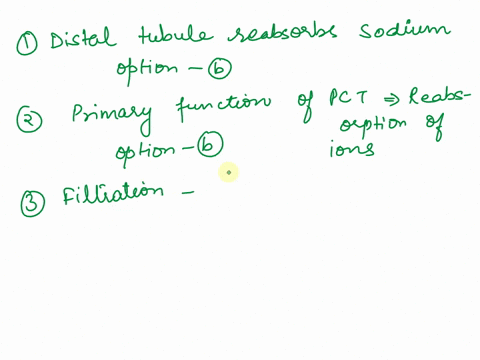 ① Distal tubule reabsorbs sodium
option - ⓑ
② Primary function of PCT ⇒ Reabs-
orption of
option - ⓑ ions
③ Filtration -